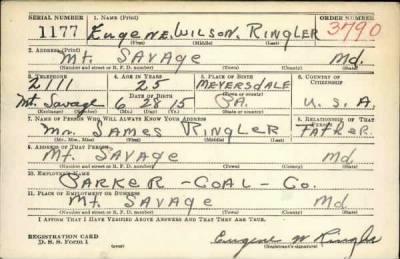 SERIAL NUMBER 1. NAME (Print) ORDER NUMBER
1177 EUGENE WILSON RINGLER 3790
(First) (Middle) (Last)
2. ADDRESS (Print)
Mt. SAVAGE Md.
(Number and street or R. F. D. number) (Town) (County) (State)
3. TELEPHONE 4. AGE IN YEARS 5. PLACE OF BIRTH 6. COUNTRY OF CITIZENSHIP
2111 25 MEYERSDALE
DATE OF BIRTH (Town or county)
Mt. Savage 6 28 15 PA. U.S.A.
(Exchange) (Number) (Mo.) (Day) (Yr.) (State or country)
7. NAME OF PERSON WHO WILL ALWAYS KNOW YOUR ADDRESS 8. RELATIONSHIP OF THAT PERSON
Mr. JAMES RINGLER FATHER.
(Mr., Mrs., Miss) (First) (Middle) (Last)
9. ADDRESS OF THAT PERSON
Mt. SAVAGE Md.
(Number and street or R. F. D. number) (Town) (County) (State)
10. EMPLOYER'S NAME
PARKER - COAL - Co.
11. PLACE OF EMPLOYMENT OR BUSINESS
Mt SAVAGE Md
(Number and street or R. F. D. number) (Town) (County) (State)
I AFFIRM THAT I HAVE VERIFIED ABOVE ANSWERS AND THAT THEY ARE TRUE.
REGISTRATION CARD
D. S. S. Form 1 Eugene W Ringler
(Registrant's signature)